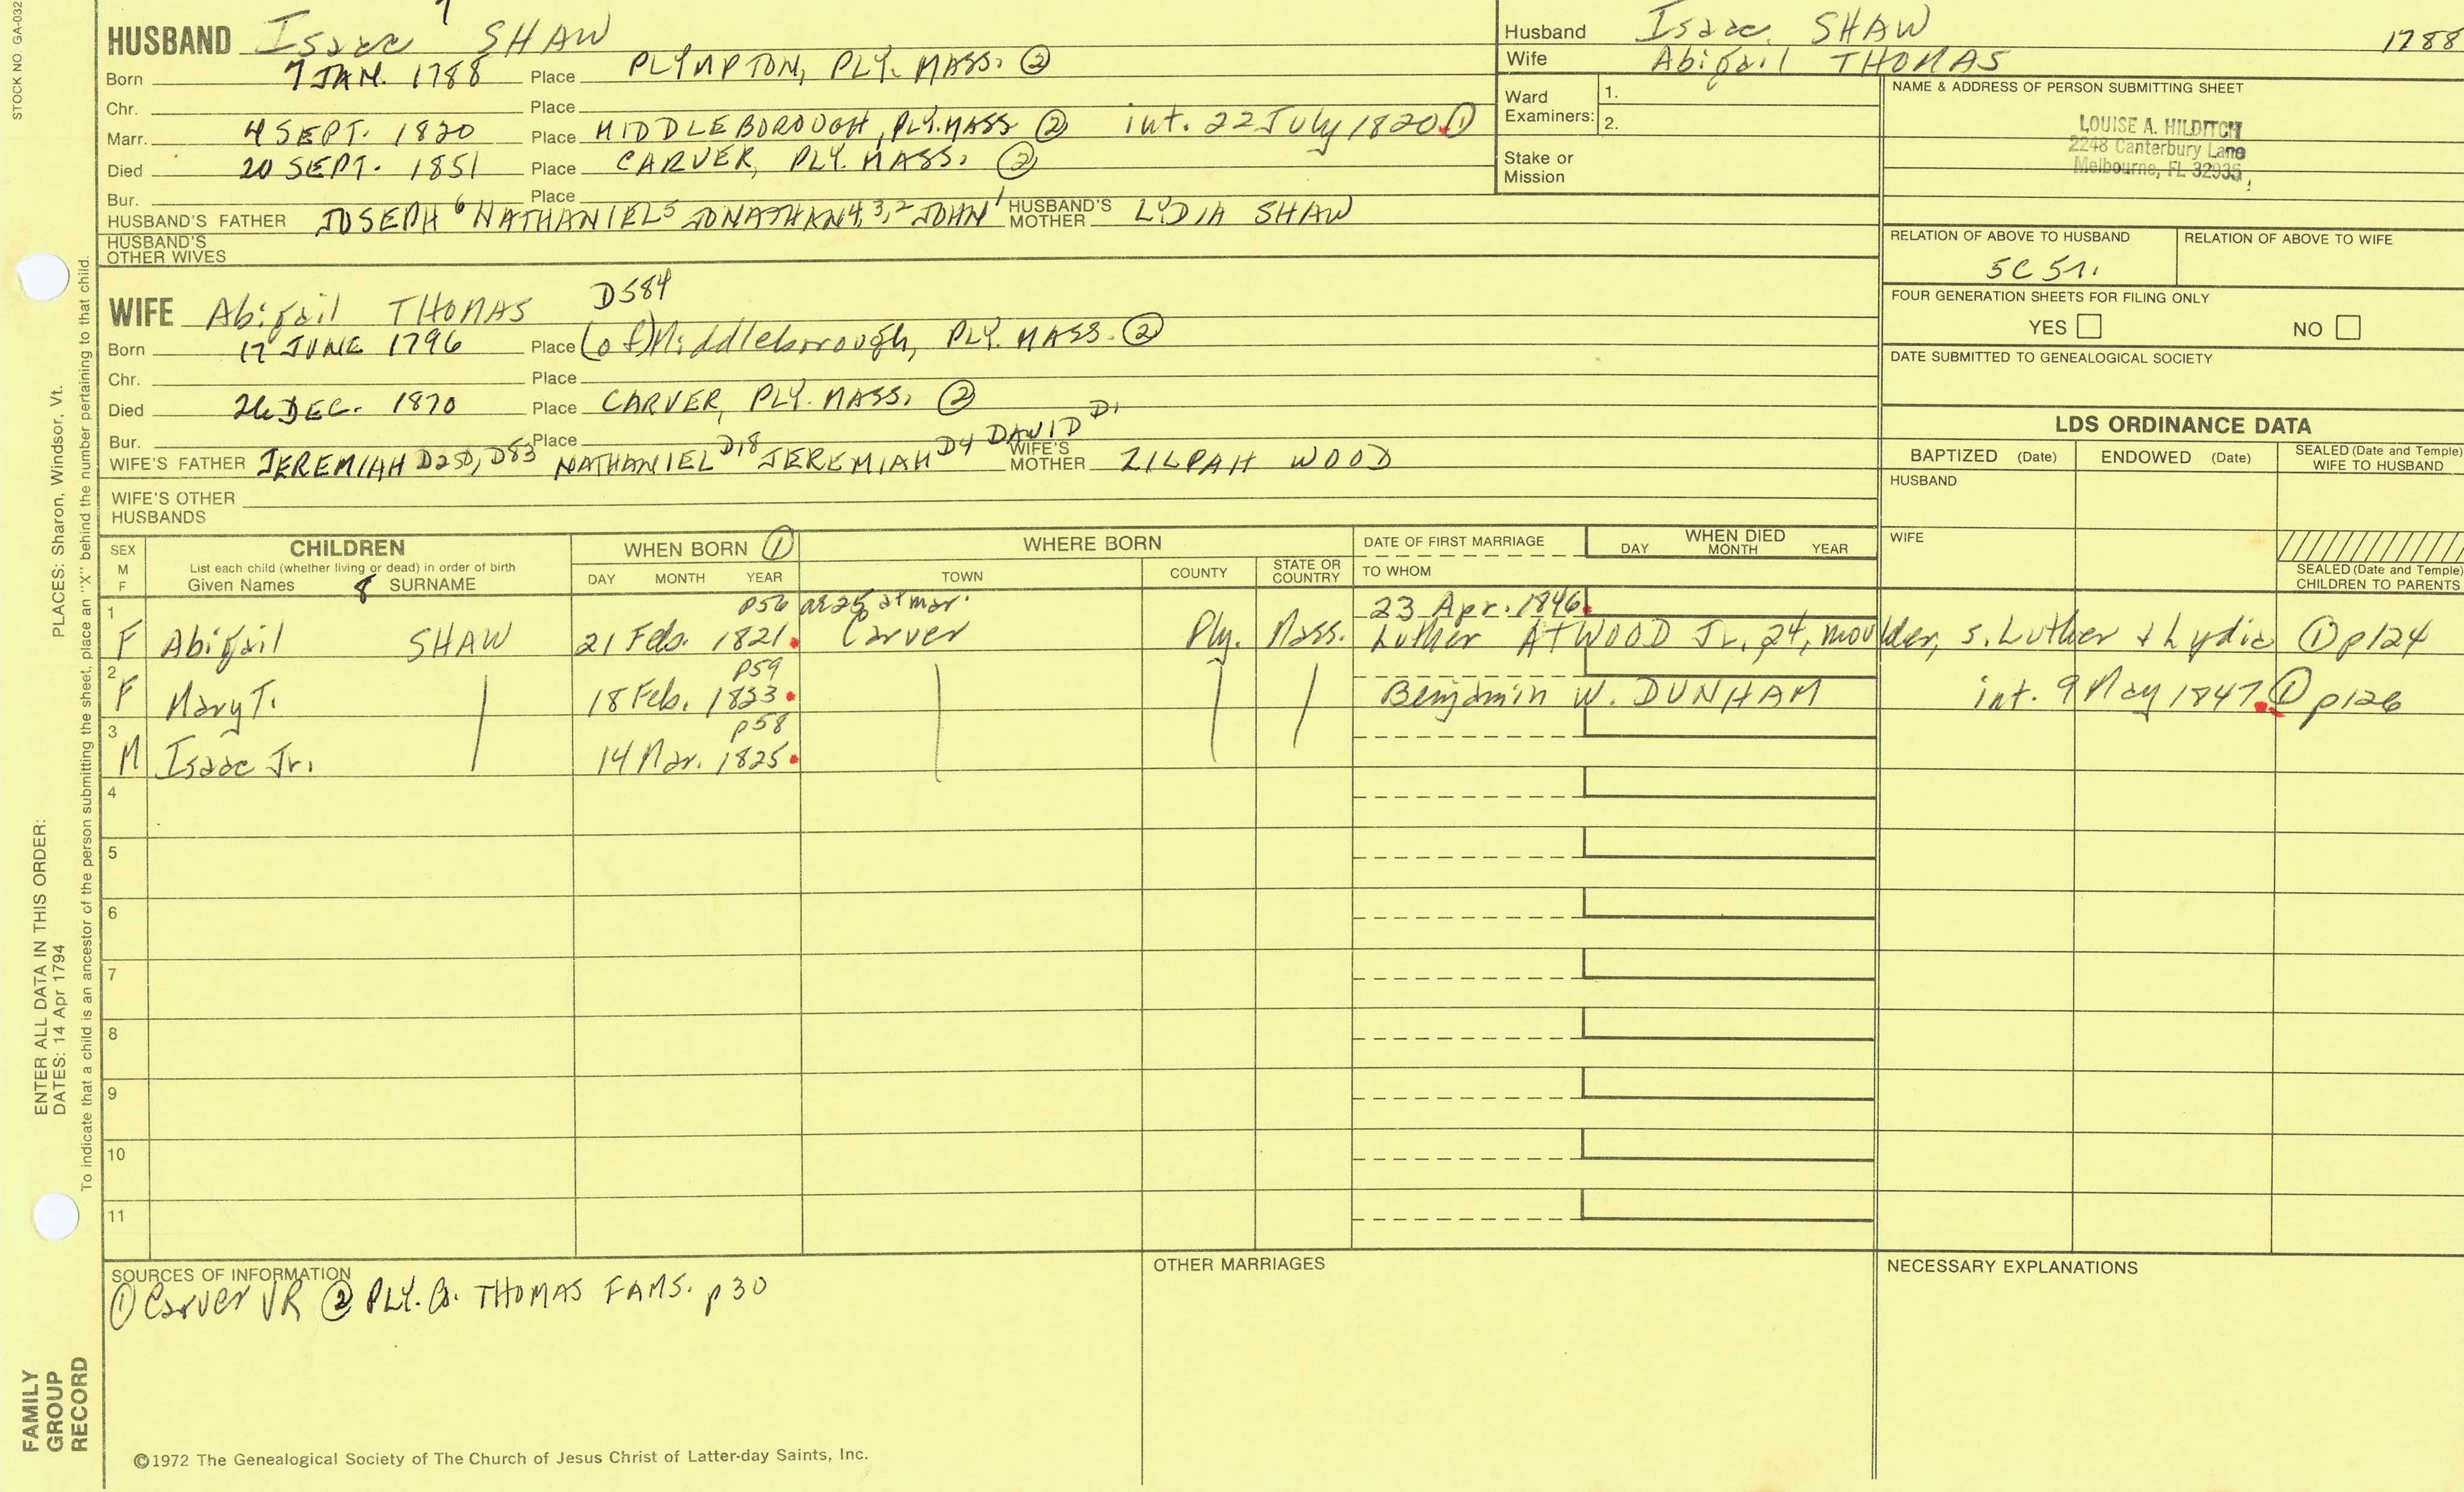 STOCK NO. GA-032
7
HUSBAND Isaac SHAW
Born 7 JAN. 1788 Place PLYMPTON, PLY. MASS. ②
Chr. Place
Marr. 4 SEPT. 1820 Place MIDDLEBOROUGH, PLY. MASS ② int. 22 July 1820. ①
Died 20 SEPT. 1851 Place CARVER, PLY. MASS. ②
Bur. Place
HUSBAND'S FATHER JOSEPH 6 NATHANIEL 5 JONATHAN 4, 3, 2 JOHN 1 HUSBAND'S MOTHER LYDIA SHAW
HUSBAND'S OTHER WIVES
Husband Isaac SHAW 1788
Wife Abigail THOMAS
Ward Examiners: 1.
2.
Stake or Mission
NAME & ADDRESS OF PERSON SUBMITTING SHEET
LOUISE A. HILDITCH
2248 Canterbury Lane
Melbourne, FL 32935
RELATION OF ABOVE TO HUSBAND RELATION OF ABOVE TO WIFE
5C 5r.
FOUR GENERATION SHEETS FOR FILING ONLY
YES NO
DATE SUBMITTED TO GENEALOGICAL SOCIETY
WIFE Abigail THOMAS D584
Born 17 JUNE 1796 Place (of) Middleborough, PLY. MASS. ②
Chr. Place
Died 26 DEC. 1870 Place CARVER, PLY. MASS. ②
Bur. Place
WIFE'S FATHER JEREMIAH D250, D83 NATHANIEL D18 JEREMIAH D4 DAVID D1 WIFE'S MOTHER ZILPAH WOOD
WIFE'S OTHER HUSBANDS
LDS ORDINANCE DATA
BAPTIZED (Date) ENDOWED (Date) SEALED (Date and Temple) WIFE TO HUSBAND
HUSBAND
WIFE
SEALED (Date and Temple) CHILDREN TO PARENTS
SEX M F
CHILDREN
List each child (whether living or dead) in order of birth
Given Names 8 SURNAME
WHEN BORN ①
DAY MONTH YEAR
WHERE BORN
TOWN COUNTY STATE OR COUNTRY
DATE OF FIRST MARRIAGE
TO WHOM
WHEN DIED
DAY MONTH YEAR
p56 ae 25 at mar. 23 Apr. 1846.
1 F Abigail SHAW 21 Feb. 1821. Carver Ply. Mass. Luther ATWOOD Jr., 24, moulder, s. Luther & Lydia ① p124
p59
2 F Mary T. 18 Feb. 1823. Benjamin W. DUNHAM int. 9 May 1847. ① p126
p58
3 M Isaac Jr. 14 Mar. 1825.
4
5
6
7
8
9
10
11
SOURCES OF INFORMATION
① Carver VR ② PLY. Co. THOMAS FAMS. p30
OTHER MARRIAGES
NECESSARY EXPLANATIONS
©1972 The Genealogical Society of The Church of Jesus Christ of Latter-day Saints, Inc.
ENTER ALL DATA IN THIS ORDER:
DATES: 14 Apr 1794 PLACES: Sharon, Windsor, Vt.
To indicate that a child is an ancestor of the person submitting the sheet, place an "X" behind the number pertaining to that child.
FAMILY
GROUP
RECORD